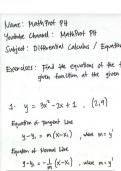 Name: MathProf PH
Youtube Channel: MathProf PH
Subject: Differential Calculus / Equation
Exercises: Find the equations of the t
given function at the given
1. y = 3x² - 2x + 1 , (2,9)
Equation of Tangent Line
y - y₁ = m(x - x₁) , where m = y'
Equation of Normal Line
y - y₁ = -1/m (x - x₁) , where m = y'